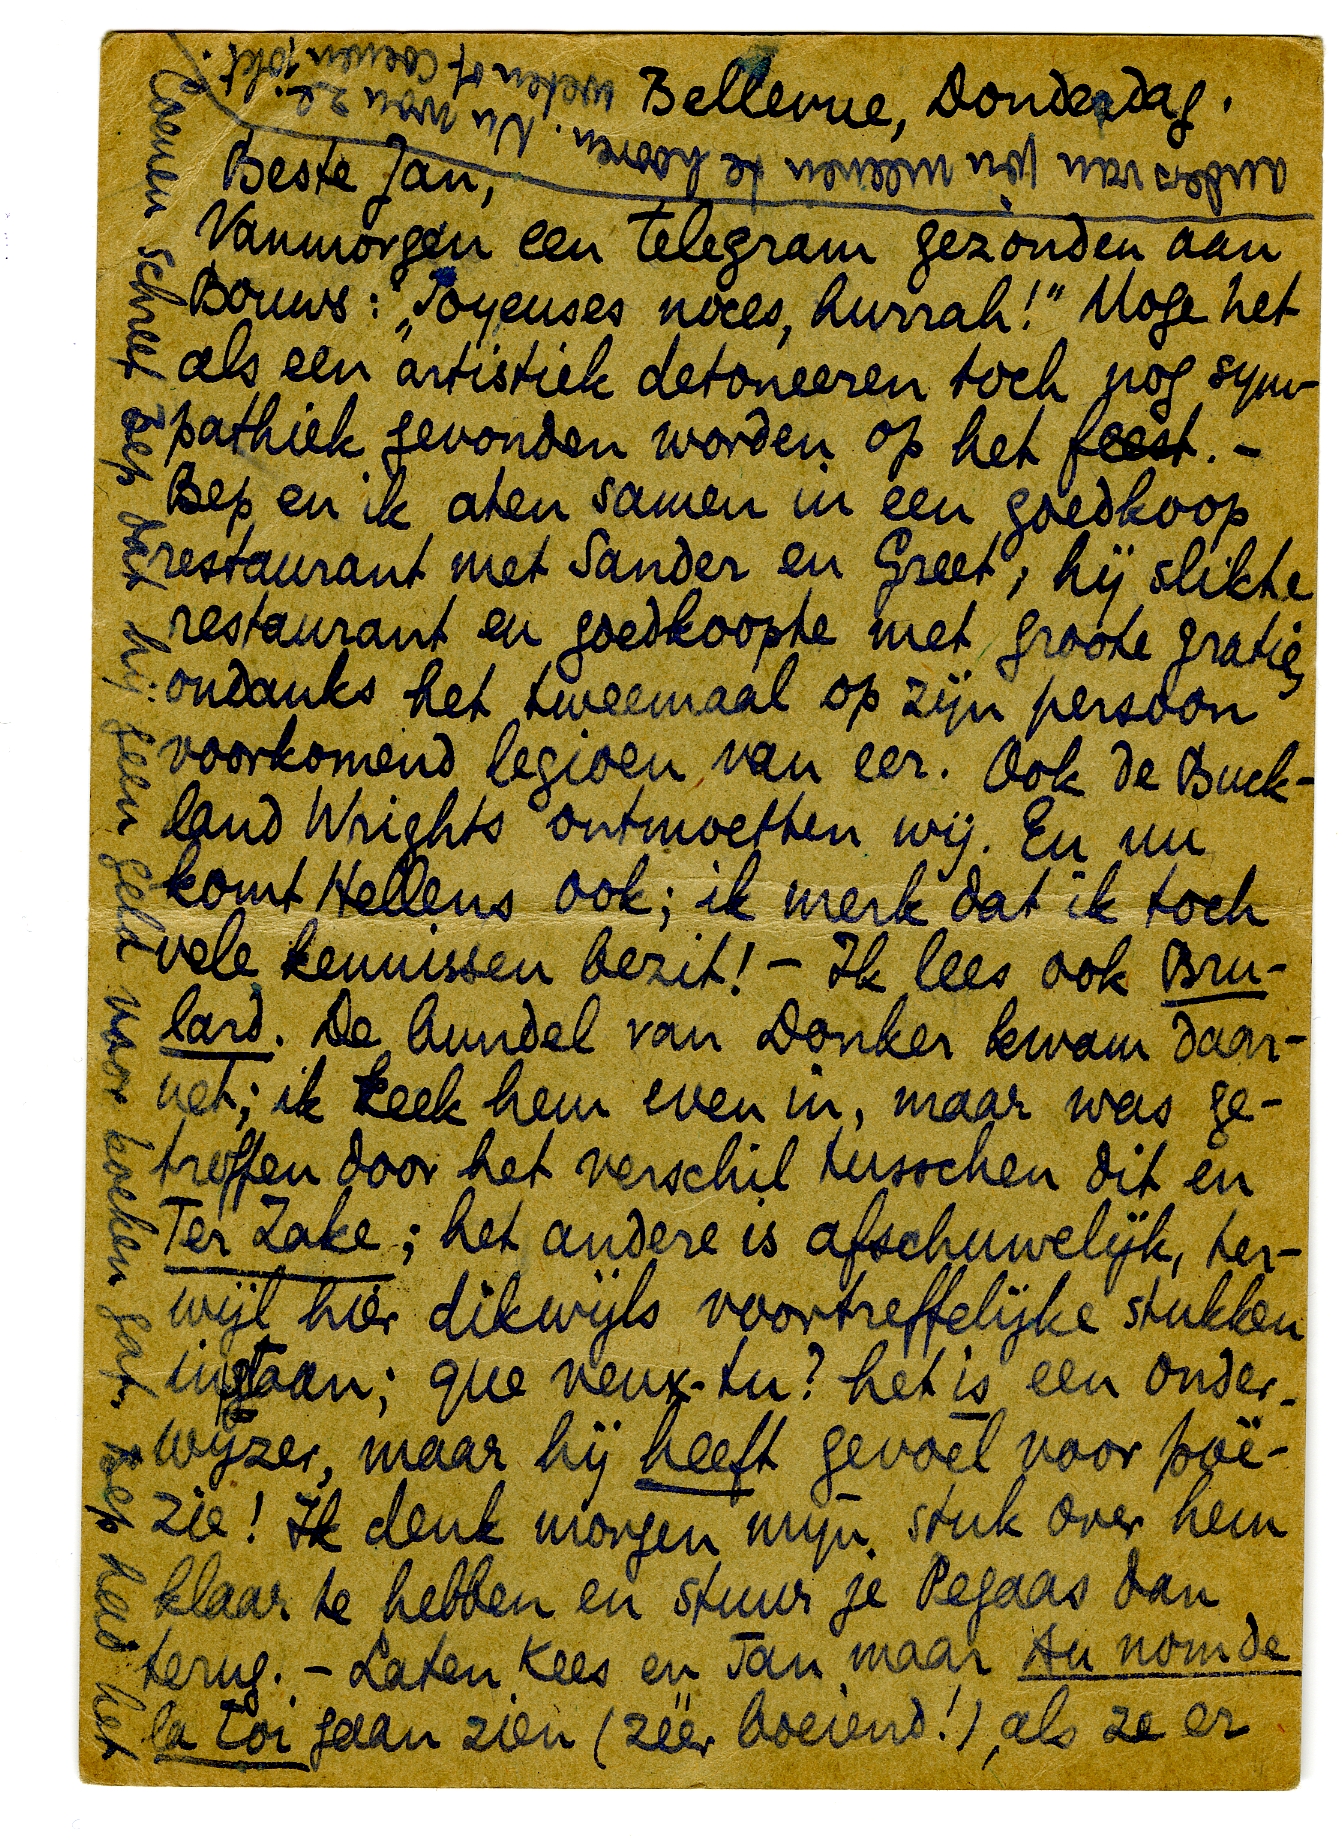 Bellevue, Donderdag.
Beste Jan,
Vanmorgen een telegram gezonden aan
Bouws: „Joyeuses noces, hurrah!" Moge het
als een artistiek detoneeren toch nog sym-
pathiek gevonden worden op het feest. -
Bep en ik aten samen in een goedkoop
restaurant met Sander en Greet; hij slikte
restaurant en goedkoopte met groote gratie,
ondanks het tweemaal op zijn persoon
voorkomend legioen van eer. Ook de Buck-
land Wrights ontmoetten wij. En nu
komt Hellens ook; ik merk dat ik toch
vele kennissen bezit! - Ik lees ook Bru-
lard. De bundel van Donker kwam daar-
net; ik keek hem even in, maar was ge-
troffen door het verschil tusschen dit en
Ter Zake; het andere is afschuwelijk, ter-
wijl hier dikwijls voortreffelijke stukken
in staan; que veux-tu? het is een onder-
wijzer, maar hij heeft gevoel voor poë-
zie! Ik denk morgen mijn stuk over hem
klaar te hebben en stuur je Pegaas dan
terug. - Laten Kees en Jan maar Au nom de
la loi gaan zien (zéér boeiend!), als ze er
Coenen schreef Bep dat hij geen geld voor boeken gaf. Bep had het
anders van jou meenen te hooren. Nu wou ze
weten of Coenen jokt.